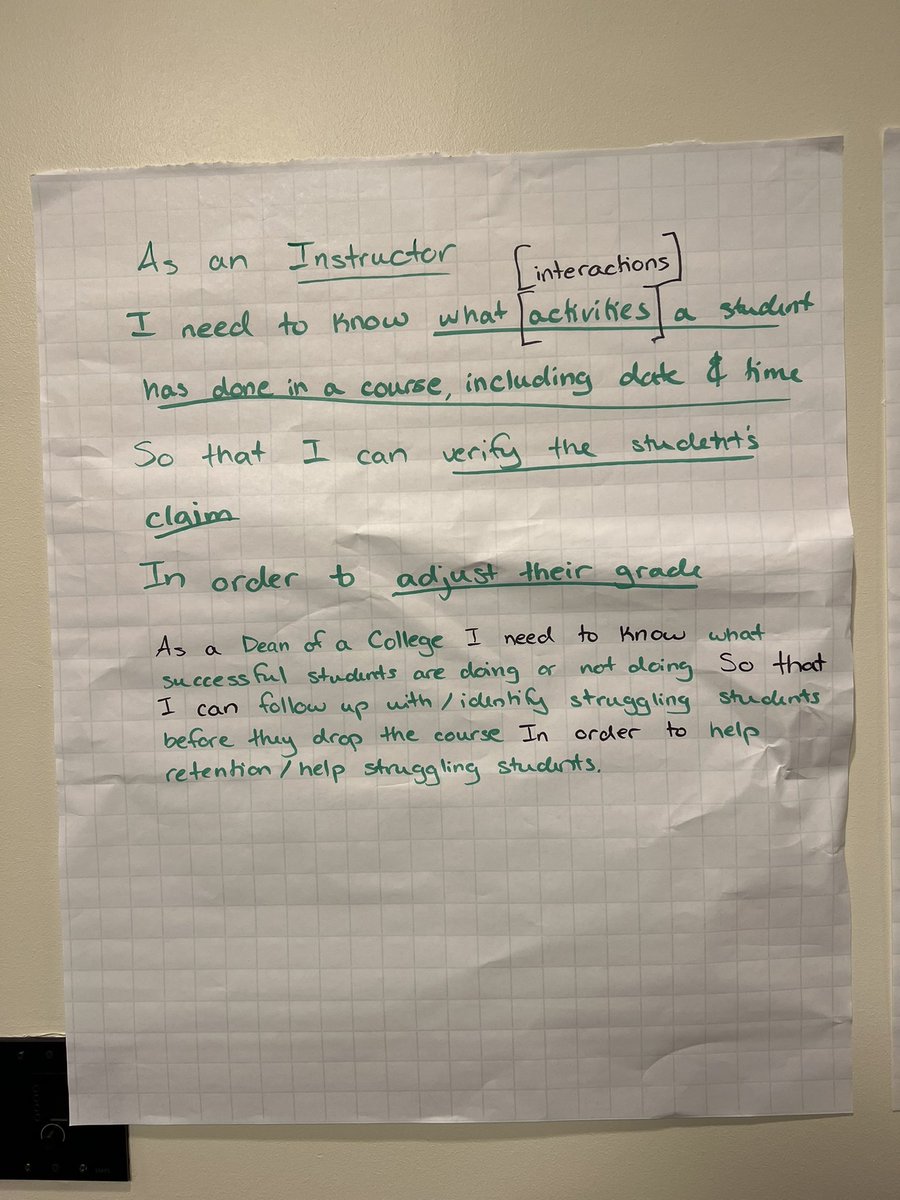 As an Instructor
[interactions]
I need to know what [activities] a student
has done in a course, including date & time
So that I can verify the student's
claim
In order to adjust their grade
As a Dean of a College I need to know what
successful students are doing or not doing So that
I can follow up with/identify struggling students
before they drop the course In order to help
retention/help struggling students.